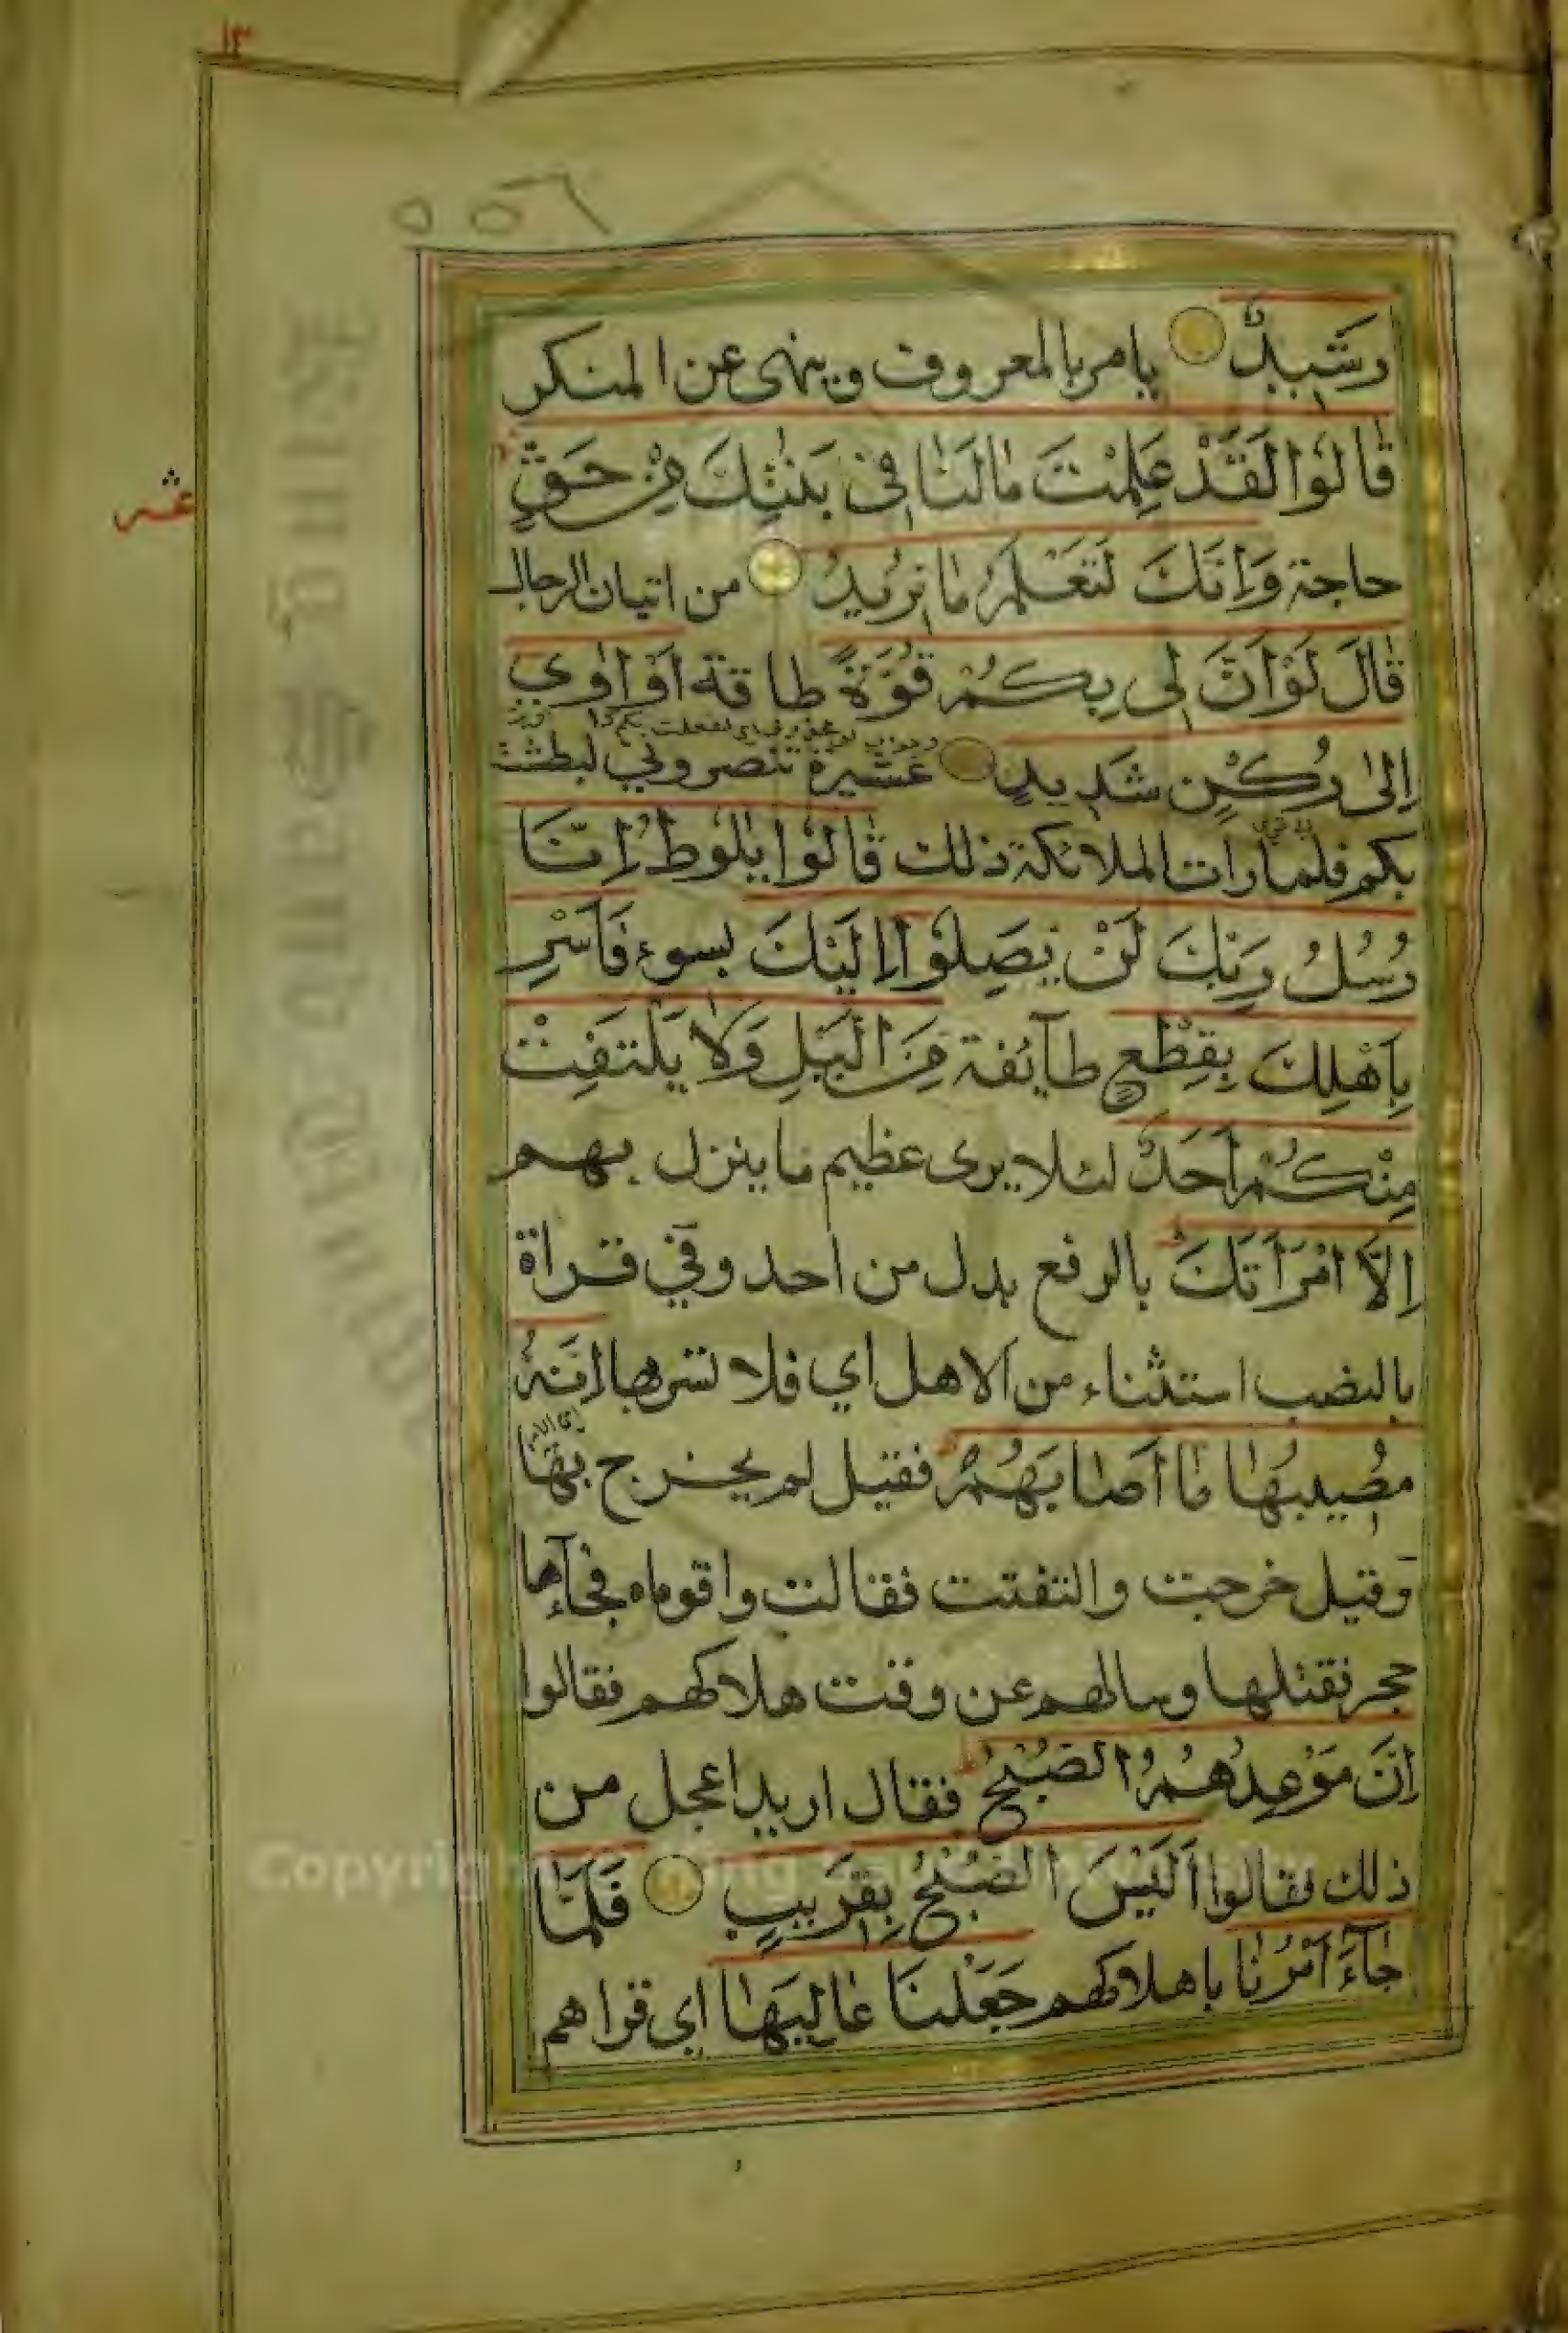 ١٣
٥٥٦
رَشِيدٌ يامر بالمعروف وينهى عن المنكر
قَالُوا لَقَدْ عَلِمْتَ مَا لَنَا فِي بَنَاتِكَ مِنْ حَقٍّ
عشر
حاجة وَإِنَّكَ لَتَعْلَمُ مَا نُرِيدُ من اتيان الرجال
قَالَ لَوْ أَنَّ لِي بِكُمْ قُوَّةً طاقة أَوْ آوِي
إِلَى رُكْنٍ شَدِيدٍ عشيرة تنصروني لبطشت
بكم فلما رات الملائكة ذلك قَالُوا يٰلُوطُ إِنَّا
رُسُلُ رَبِّكَ لَنْ يَصِلُوا إِلَيْكَ بسوء فَأَسْرِ
بِأَهْلِكَ بِقِطْعٍ طآئفة مِنَ الَّيْلِ وَلَا يَلْتَفِتْ
مِنْكُمْ أَحَدٌ لئلا يرى عظيم ما ينزل بهم
إِلَّا امْرَأَتَكَ بالرفع بدل من احد وفي قراة
بالنصب استثناء من الاهل اي فلا تسر بها إِنَّهُ
مُصِيبُهَا مَا أَصَابَهُمْ فقيل لم يخرج بها
وقيل خرجت والتفتت فقالت واقوماه فجآءها
حجر فقتلها وسالهم عن وقت هلاكهم فقالوا
إِنَّ مَوْعِدَهُمُ الصُّبْحُ فقال اريد اعجل من
ذلك فقالوا أَلَيْسَ الصُّبْحُ بِقَرِيبٍ فَلَمَّا
جَآءَ أَمْرُنَا باهلاكهم جَعَلْنَا عَالِيَهَا اي قراهم